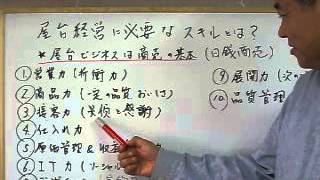 屋台経営に必要なスキルとは?
*屋台ビジネスは商売の基本(日銭商売)
①営業力(折衝力)
②商品力(一定の品質 おいけ)
③接客力(笑顔と感謝)
④仕入れ力
⑤原価管理&収
⑥IT力(ソーシャル
⑨展開力(次の
⑩品質管理